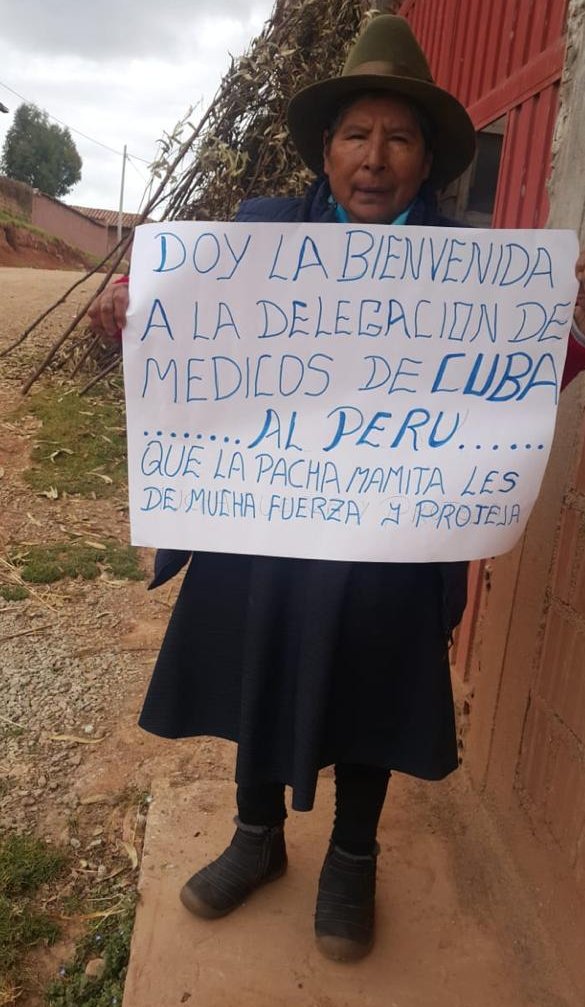 DOY LA BIENVENIDA
A LA DELEGACION DE
MEDICOS DE CUBA
......... AL PERU......
QUE LA PACHA MAMITA LES
DE MUCHA FUERZA Y PROTEJA